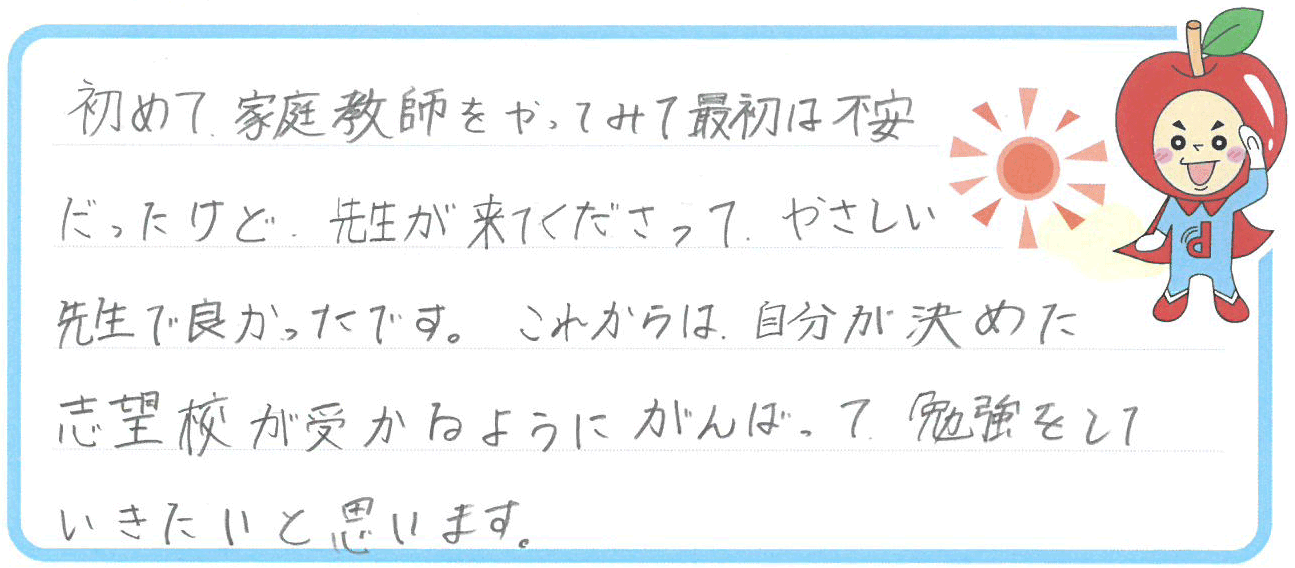 初めて、家庭教師をやってみて最初は不安
だったけど、先生が来てくださって、やさしい
先生で良かったです。これからは、自分が決めた
志望校が受かるようにがんばって、勉強をして
いきたいと思います。